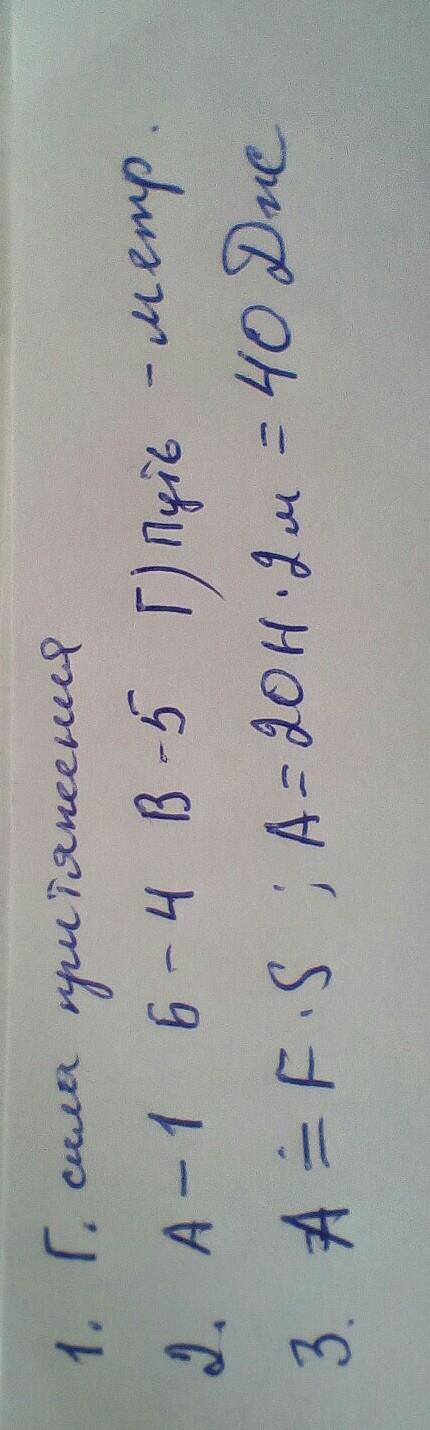 1. Г. сила притяжения
2. А - 1 Б - 4 В - 5 Г) Путь - метр.
3. A = F · S ; A = 20 Н · 2 м = 40 Дж